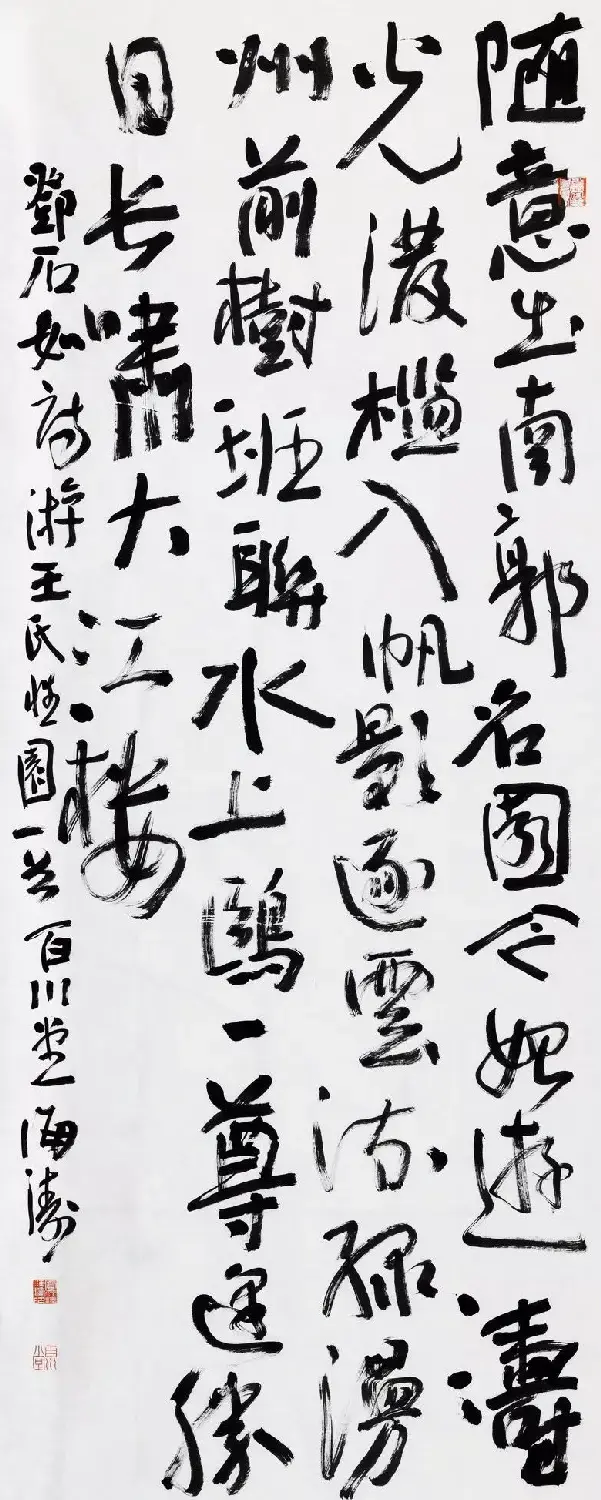 随意出南郭名園今始遊濤
光潑檻入帆影逐雲流綠漫
州前樹班聯水上鷗一尊逢勝
日長嘯大江樓
鄧石如詩游王氏園一首百川堂海濤